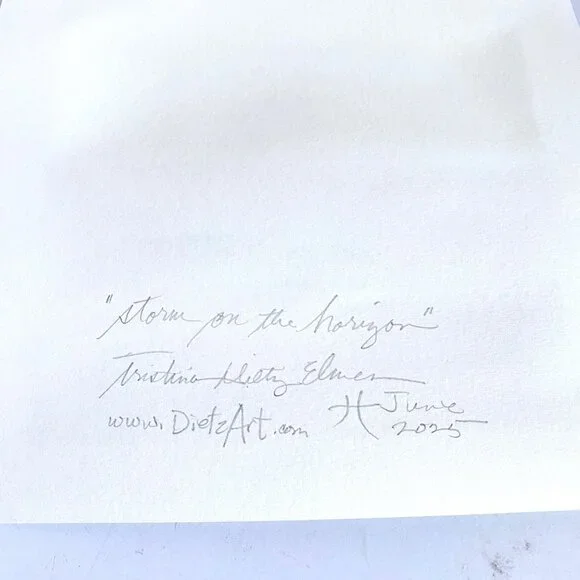 "Storm on the horizon"
Tristina Dietz Elmes
www.DietzArt.com
June
2025